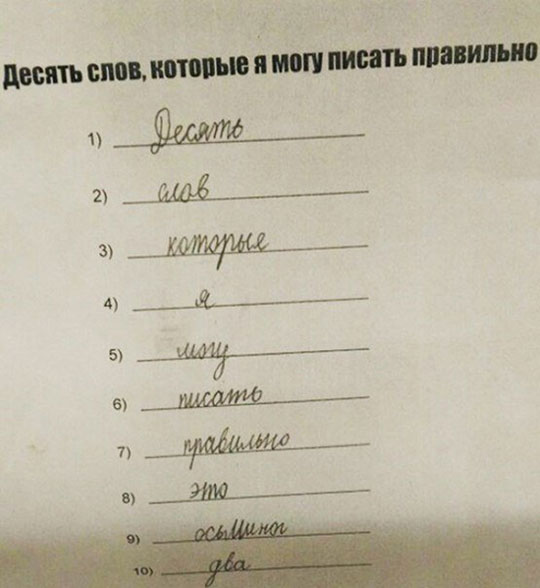 Десять слов, которые я могу писать правильно
1) Десять
2) слов
3) которые
4) я
5) могу
6) писать
7) правильно
8) это
9) осыминог
10) два